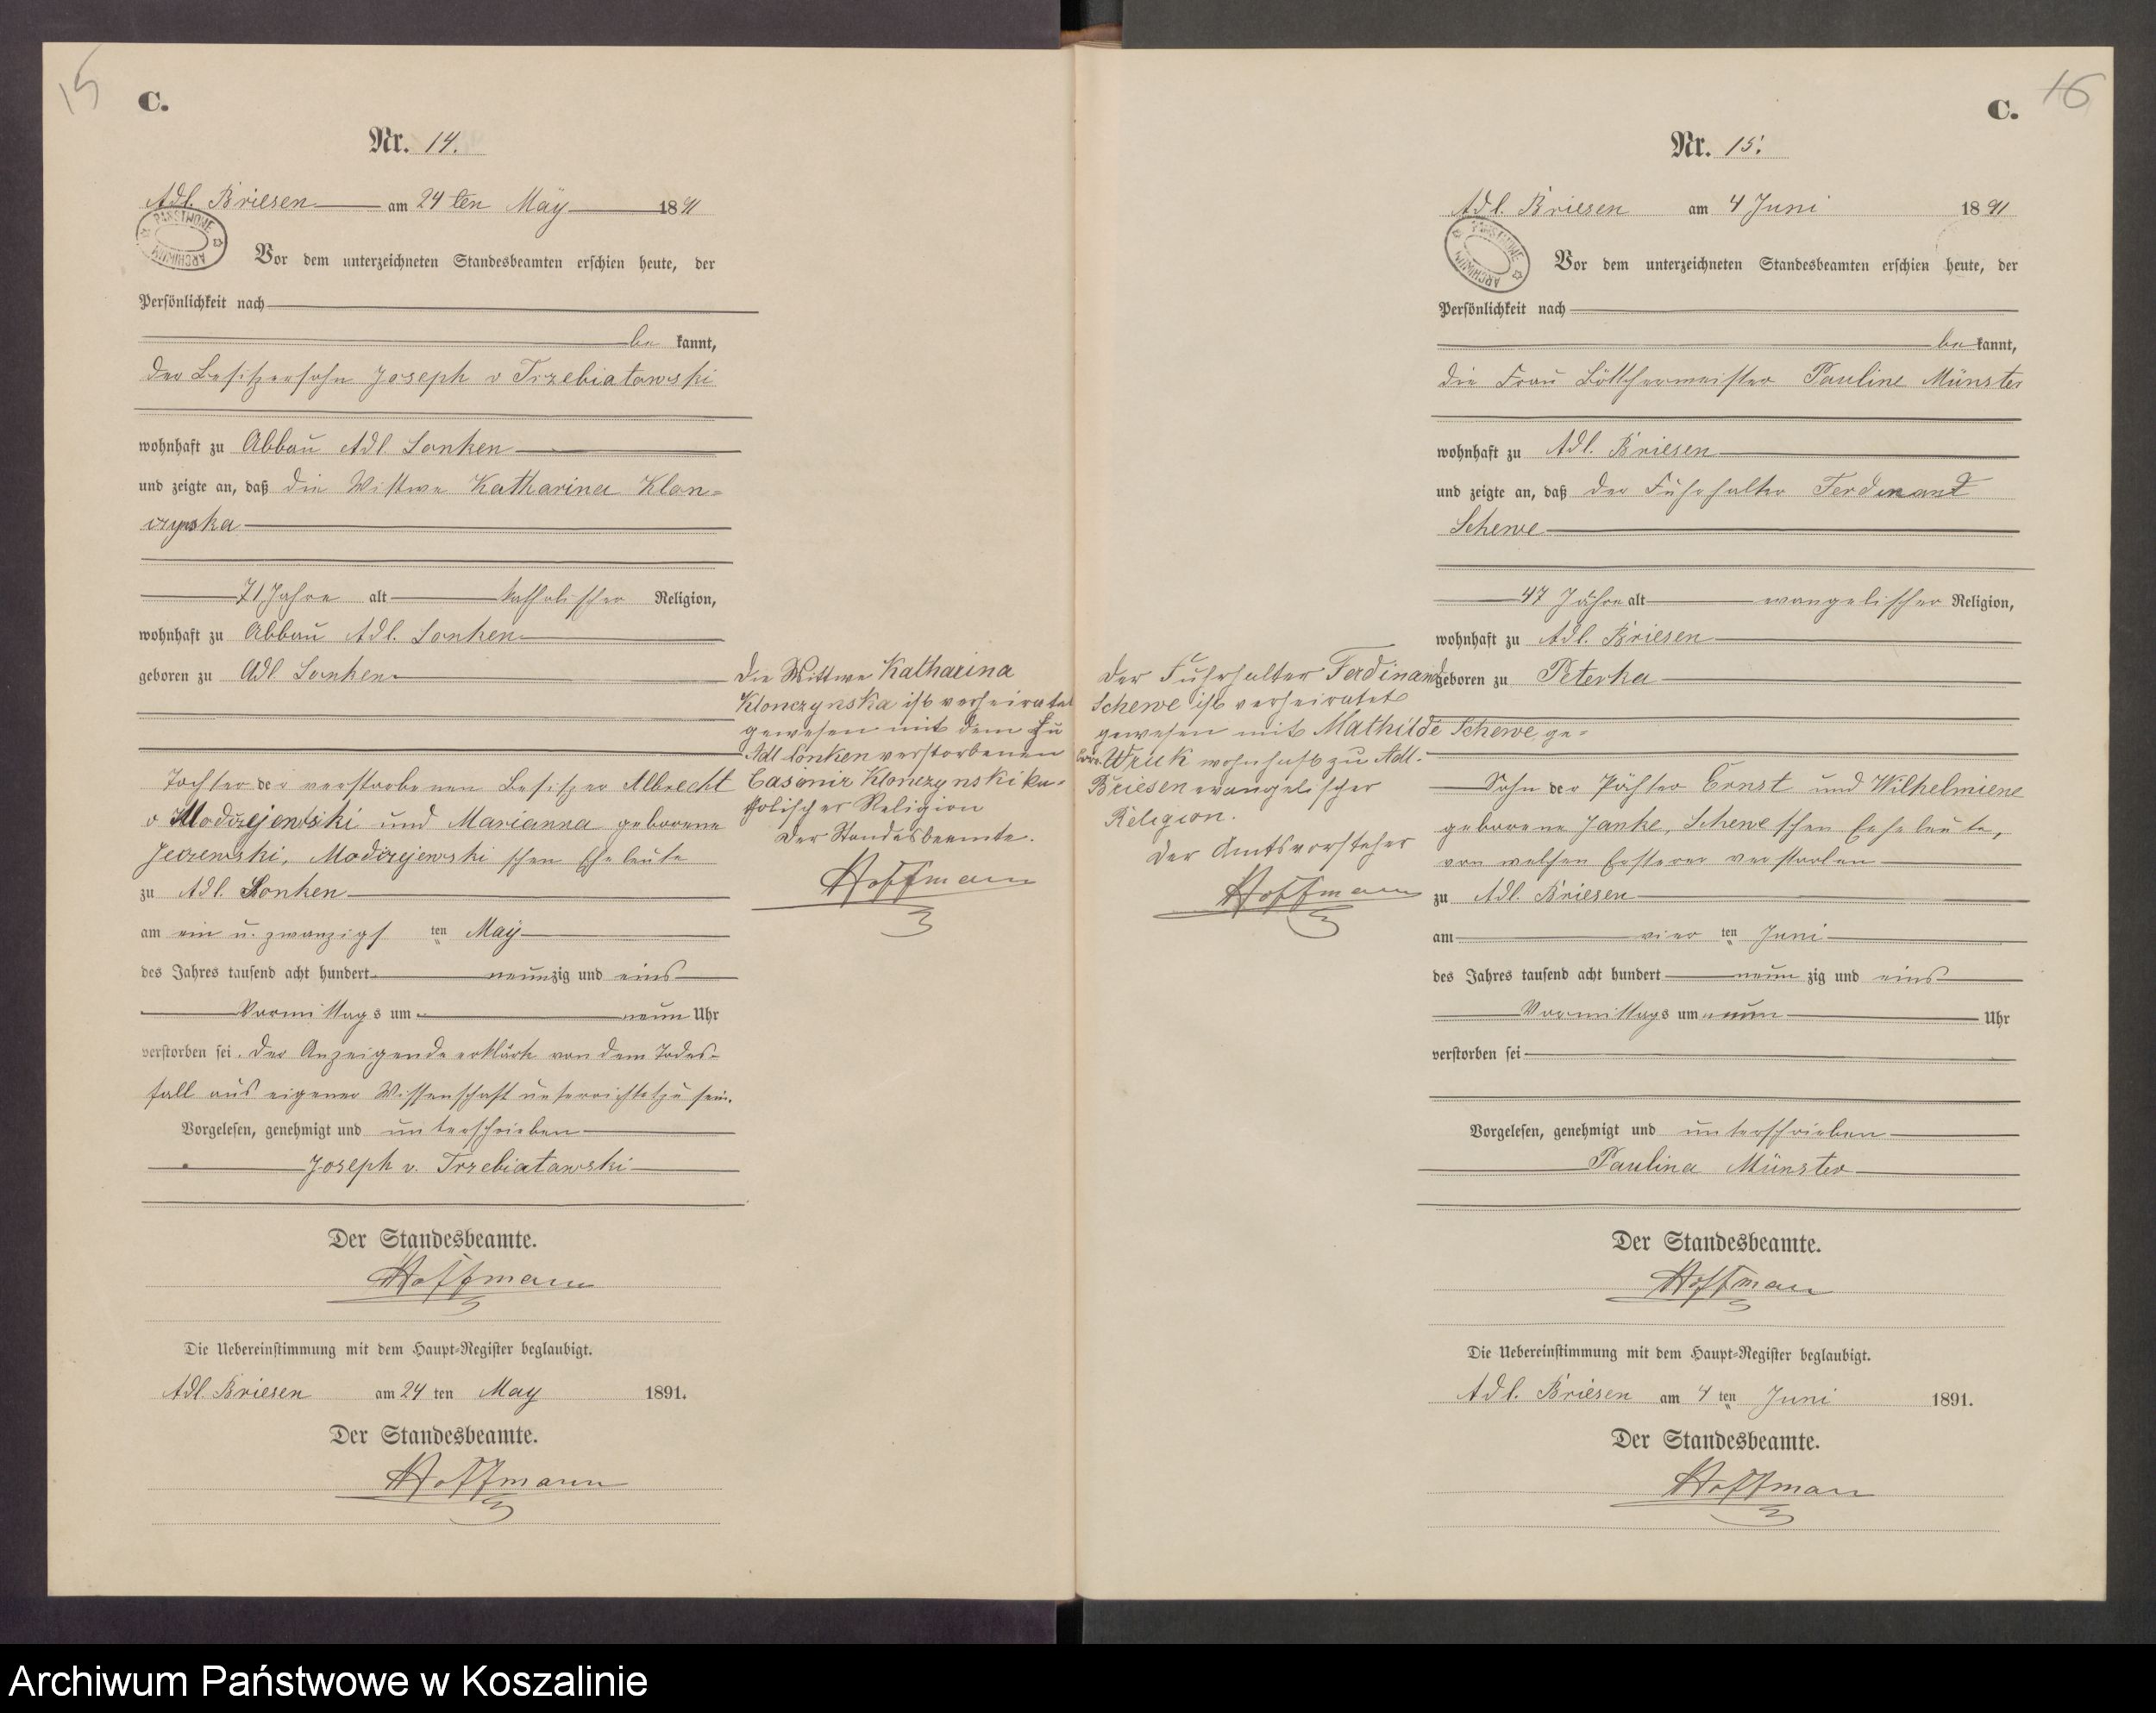 15
C.
Nr. 14.
Adl. Briesen am 24 ten May 1891
PAŃSTWOWE ARCHIWUM
Vor dem unterzeichneten Standesbeamten erschien heute, der
Persönlichkeit nach
be kannt,
der Besitzersohn Joseph v Trzebiatowski
wohnhaft zu Abbau Adl. Lonken
und zeigte an, daß die Wittwe Katharina Klon=
czynska
71 Jahre alt katholischer Religion,
wohnhaft zu Abbau Adl. Lonken
geboren zu Adl. Lonken
Tochter der verstorbenen Besitzer Albrecht
v Modrzejewski und Marianna geborene
Modrzejewski schen Eheleute
zu Adl. Lonken
am ein u. zwanzigs ten May
des Jahres tausend acht hundert neunzig und eins
Vormittags um neun Uhr
verstorben sei. Der Anzeigende erklärte von dem Todes-
fall aus eigener Wissenschaft unterrichtet zu sein.
Vorgelesen, genehmigt und unterschrieben
Joseph v. Trzebiatowski
Der Standesbeamte.
Hoffmann
Die Uebereinstimmung mit dem Haupt-Register beglaubigt.
Adl. Briesen am 24 ten May 1891.
Der Standesbeamte.
Hoffmann
Die Wittwe Katharina
Klonczynska ist verheiratet
gewesen mit dem zu
Adl Lonken verstorbenen
Casimir Klonczynski ka=
tholischer Religion
Der Standesbeamte.
Hoffmann
16
C.
Nr. 15.
Adl. Briesen am 4 Juni 1891
PAŃSTWOWE ARCHIWUM
Vor dem unterzeichneten Standesbeamten erschien heute, der
Persönlichkeit nach
be kannt,
die Frau Böttchermeister Pauline Münster
wohnhaft zu Adl. Briesen
und zeigte an, daß der Fuhrhalter Ferdinand
Schewe
47 Jahre alt evangelischer Religion,
wohnhaft zu Adl. Briesen
geboren zu Peterka
Sohn der Pächter Ernst und Wilhelmiene
geborene Janke, Schewe schen Eheleute,
von welchen Ersterer verstorben
zu Adl. Briesen
am vier ten Juni
des Jahres tausend acht hundert neun zig und eins
Vormittags um neun Uhr
verstorben sei
Vorgelesen, genehmigt und unterschrieben
Paulina Münster
Der Standesbeamte.
Hoffmann
Die Uebereinstimmung mit dem Haupt-Register beglaubigt.
Adl. Briesen am 4 ten Juni 1891.
Der Standesbeamte.
Hoffmann
Der Fuhrhalter Ferdinand
Schewe ist verheiratet
gewesen mit Mathilde Schewe ge=
borene Wruk wohnhaft zu Adl.
Briesen evangelischer
Religion.
Der Amtsvorsteher
Hoffmann
Archiwum Państwowe w Koszalinie